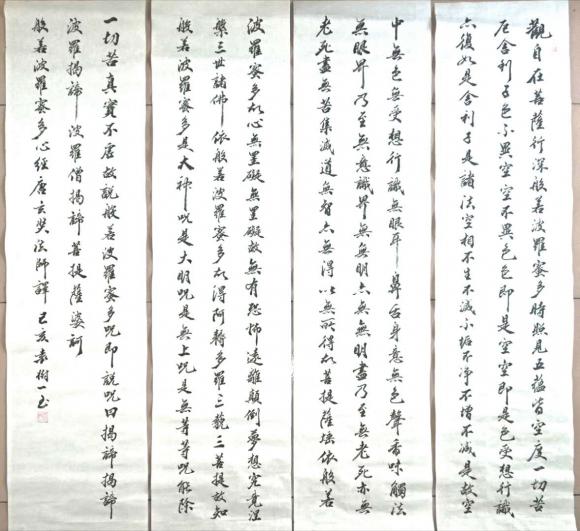 觀自在菩薩行深般若波羅蜜多時照見五蘊皆空度一切苦
厄舍利子色不異空空不異色色即是空空即是色受想行識
亦復如是舍利子是諸法空相不生不滅不垢不净不增不減是故空
中無色無受想行識無眼耳鼻舌身意無色聲香味觸法
無眼界乃至無意識界無無明亦無無明盡乃至無老死亦無
老死盡無苦集滅道無智亦無得以無所得故菩提薩埵依般若
波羅蜜多故心無罣礙無罣礙故無有恐怖遠離顛倒夢想究竟涅
槃三世諸佛依般若波羅蜜多故得阿耨多羅三藐三菩提故知
般若波羅蜜多是大神呪是大明呪是無上呪是無等等呪能除
一切苦真實不虛故說般若波羅蜜多呪即說呪曰揭諦揭諦
波羅揭諦波羅僧揭諦菩提薩婆訶
般若波羅蜜多心經唐玄奘法師譯 己亥